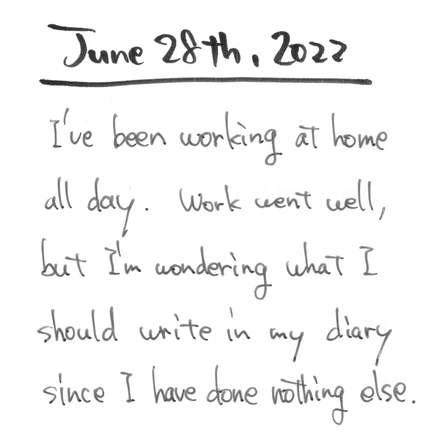 June 28th, 2022
I've been working at home
all day. Work went well,
but I'm wondering what I
should write in my diary
since I have done nothing else.